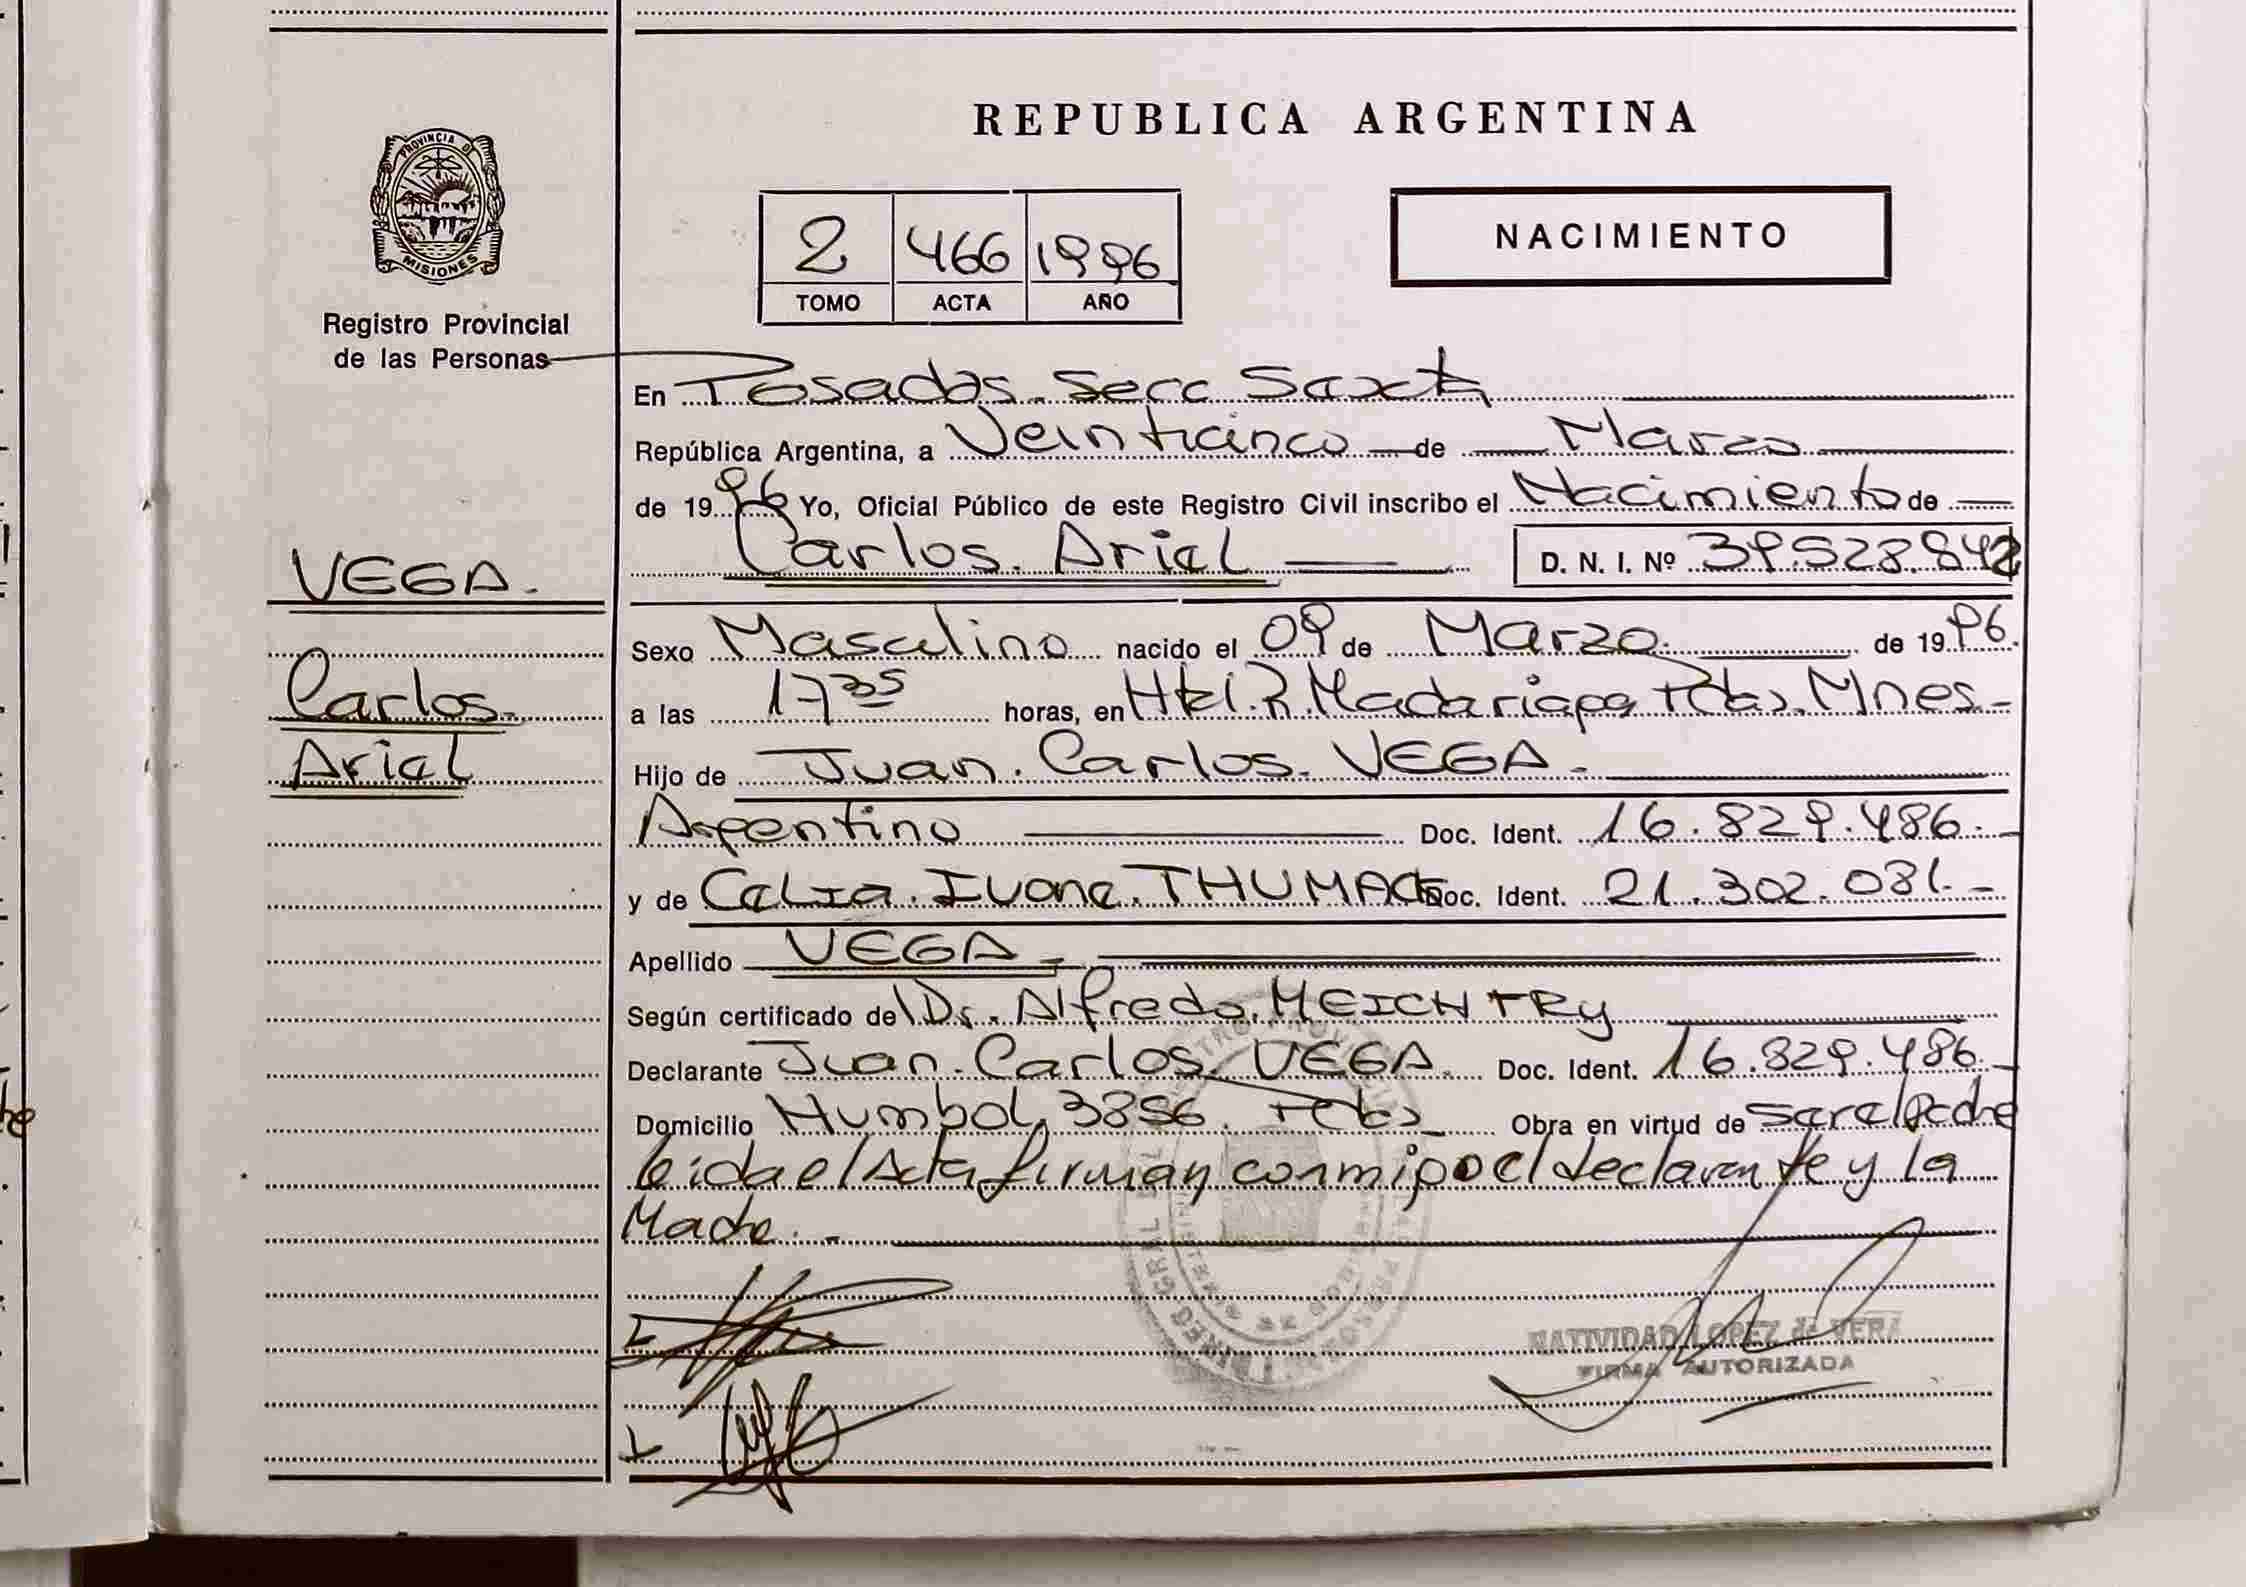 REPUBLICA ARGENTINA
PROVINCIA DE
MISIONES
Registro Provincial
de las Personas
2 466 1996
TOMO ACTA AÑO
NACIMIENTO
En Posadas. Secc Sexta
República Argentina, a Veinticinco de Marzo
de 1996 Yo, Oficial Público de este Registro Civil inscribo el Nacimiento de
Carlos. Ariel D. N. I. Nº 39.528.842
VEGA.
Carlos.
Ariel
Sexo Masculino nacido el 09 de Marzo. de 1996.
a las 17 35 horas, en Htl. R. Madariaga Pdas. Mnes-
Hijo de Juan. Carlos. VEGA.
Argentino Doc. Ident. 16.829.486.-
y de Celia. Ivone. Doc. Ident. 21.302.081.-
Apellido VEGA.
Según certificado de Dr. Alfredo. MEICHTRY
Declarante Juan. Carlos. VEGA. Doc. Ident. 16.829.486.-
Domicilio Humbol. 3856. Pdas Obra en virtud de
leida el Acta firman conmigo el declarante y la
Madre.-
NATIVIDAD LOPEZ de VERA
FIRMA AUTORIZADA